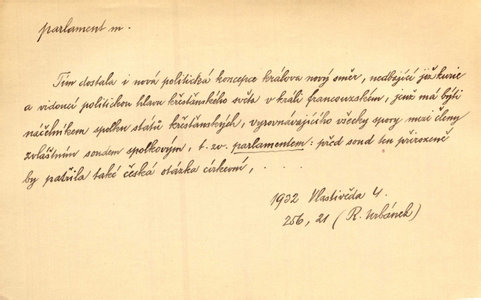 parlament m.
Tím dostala i nová politická koncepce králova nový směr, nedbající již kurie
a vidoucí politickou hlavu křesťanského světa v králi francouzském, jenž má býti
náčelníkem spolku států křesťanských, vyrovnávajícího všecky spory mezi členy
zvláštním soudem spolkovým, t. zv. parlamentem: před soud ten přirozeně
by patřila také česká otázka církevní, . . . .
1932 Vlastivěda 4.
256, 21 (R. Urbánek)